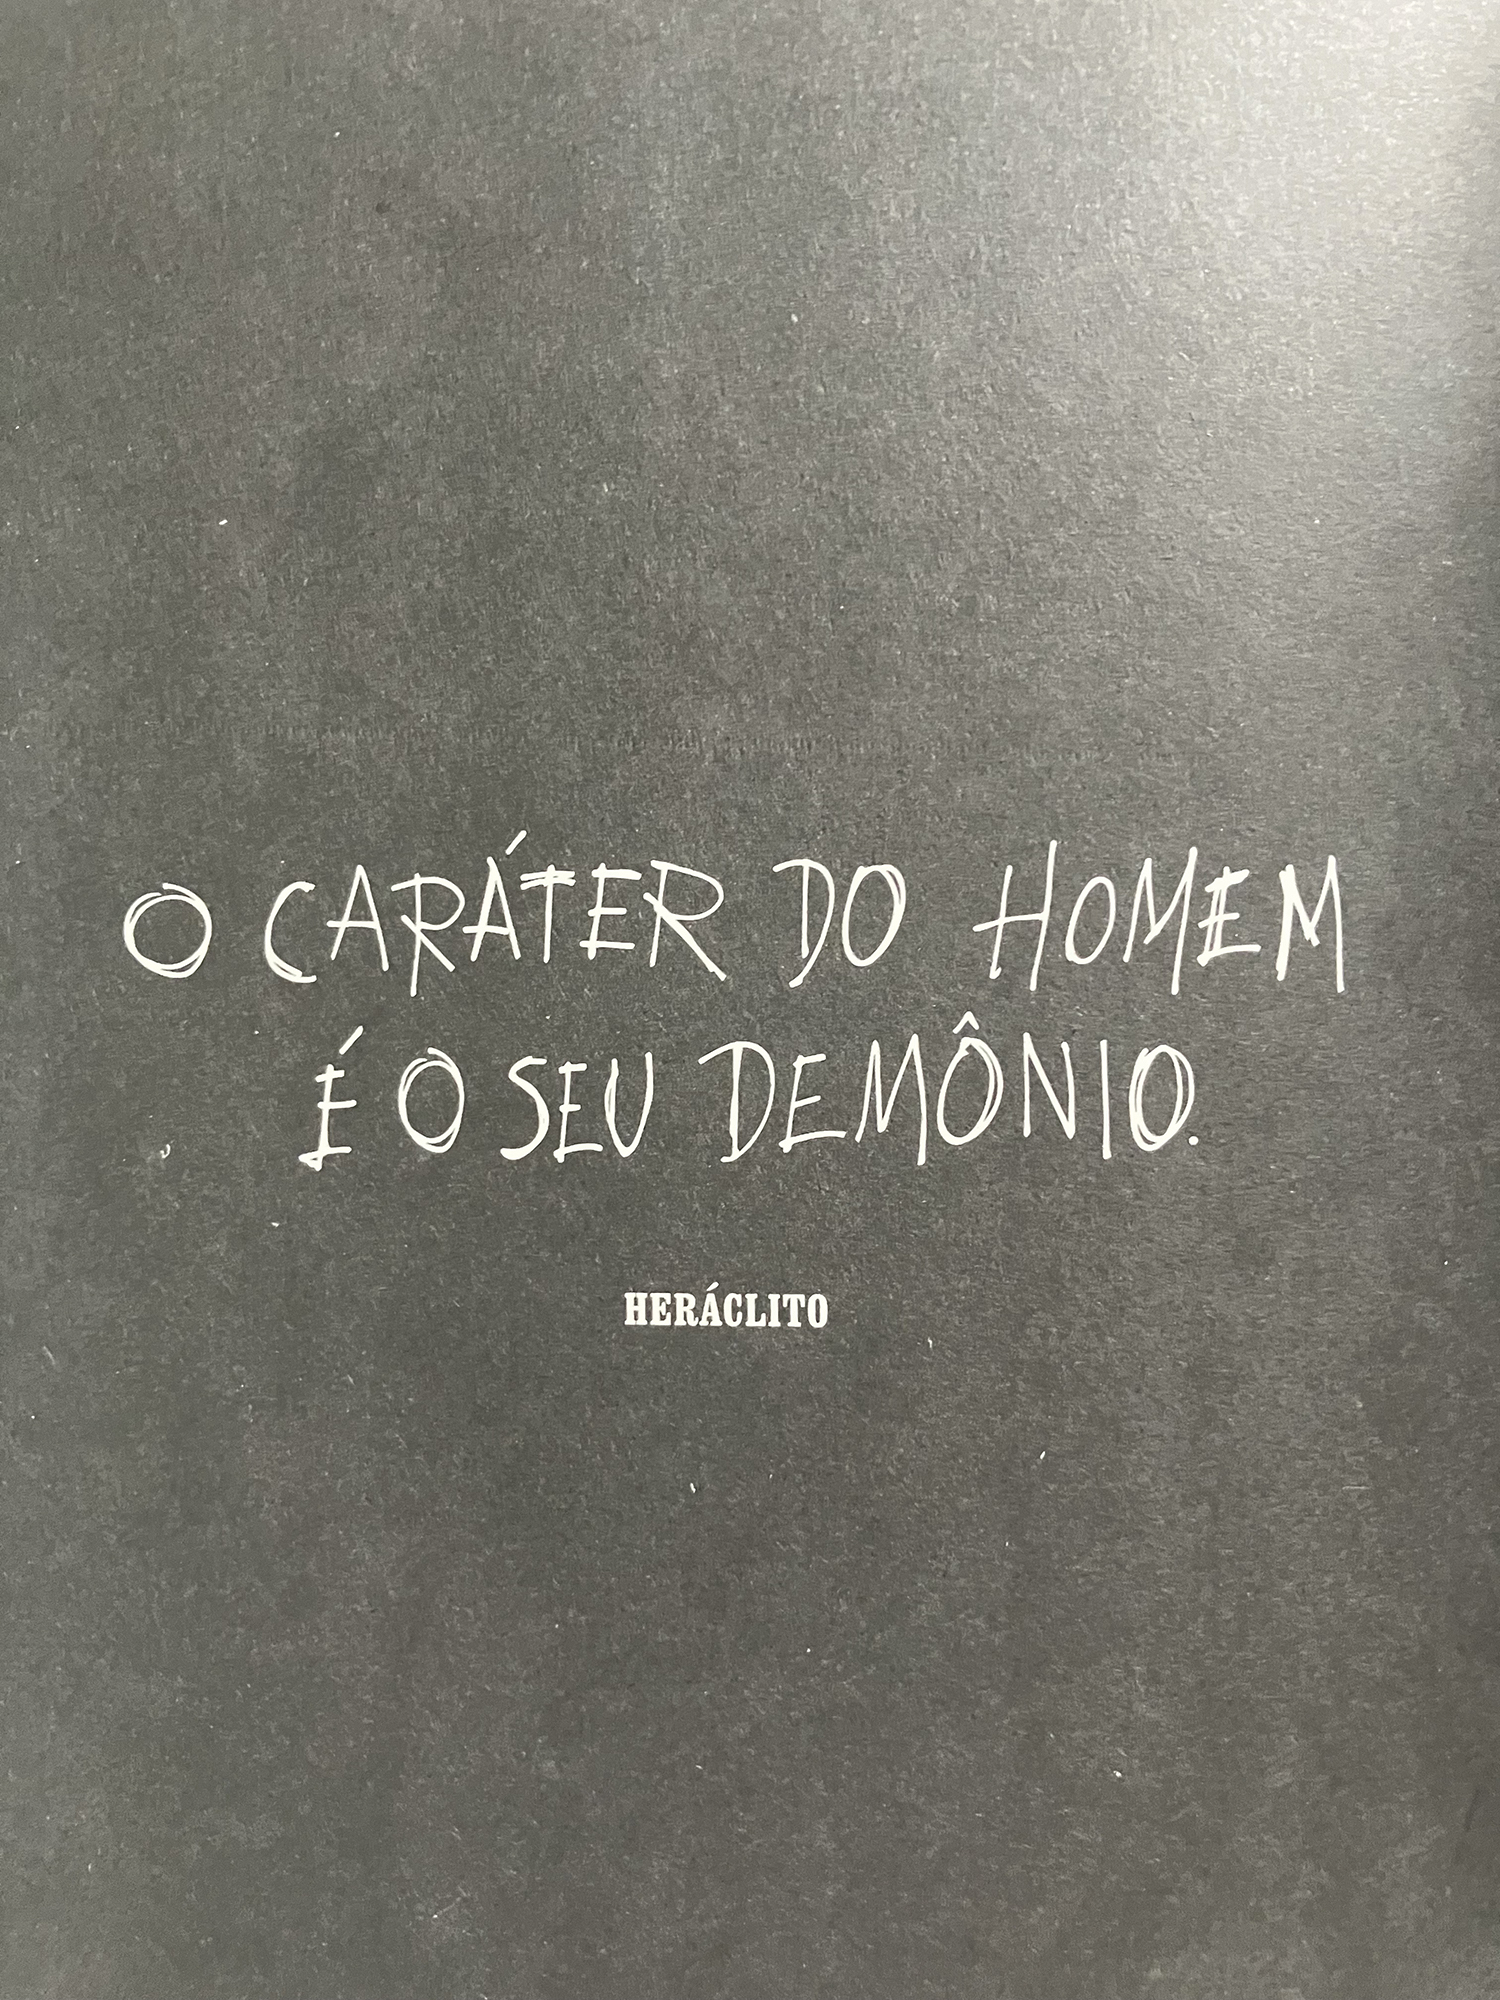 O CARÁTER DO HOMEM
É O SEU DEMÔNIO.
HERÁCLITO